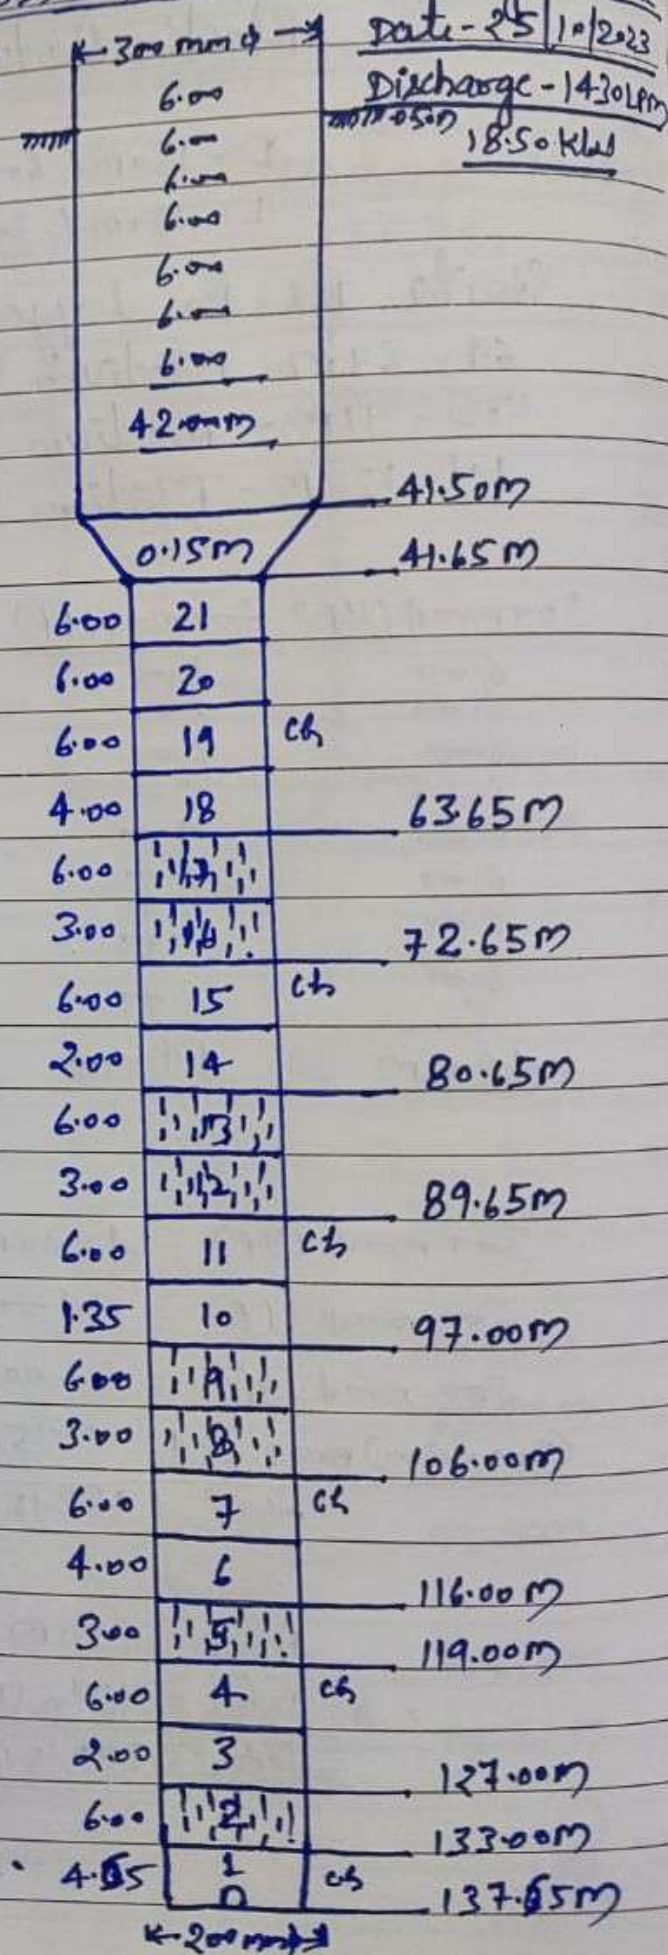 300 mm φ Date - 25/10/2023
6.00 Discharge - 1430 LPM
6.00 0.50m
18.50 KW
6.00
6.00
6.00
6.00
6.00
42.00m
41.50m
0.15m 41.65m
6.00 21
6.00 20
6.00 19 Ch
4.00 18 63.65m
6.00 17
3.00 16 72.65m
6.00 15 Ch
2.00 14 80.65m
6.00 13
3.00 12 89.65m
6.00 11 Ch
1.35 10 97.00m
6.00 9
3.00 8 106.00m
6.00 7 Ch
4.00 6 116.00m
3.00 5 119.00m
6.00 4 Ch
2.00 3 127.00m
6.00 2 133.00m
4.65 1 Ch 137.65m
200 mm φ